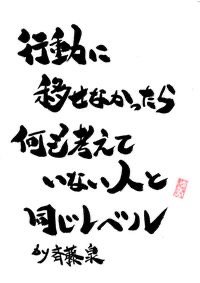 行動に
移せなかったら
何も考えて
いない人と
同じレベル
by 斉藤泉